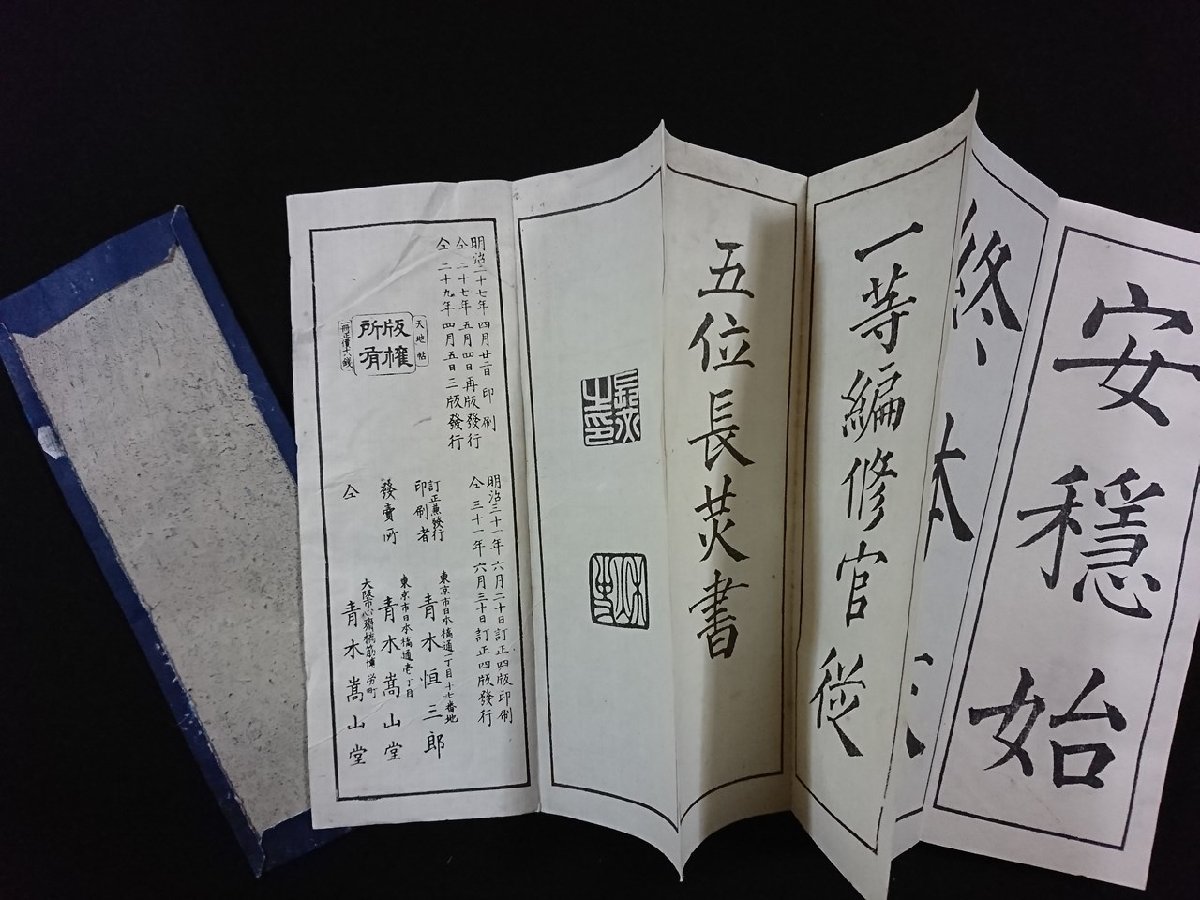 安穩始
終本
一等編修官從
五位長炗書
明治二十七年四月廿二日印刷
仝二十七年五月四日再版發行
仝二十九年四月五日三版發行
天地帖
版權
所有
明治三十一年六月二十日訂正四版印刷
仝三十一年六月三十日訂正四版發行
訂正兼發行
印刷者
東京市日本橋通一丁目十七番地
青木恒三郎
發賣所
東京市日本橋通壱丁目
青木嵩山堂
仝
大阪市心齋橋筋博労町
青木嵩山堂